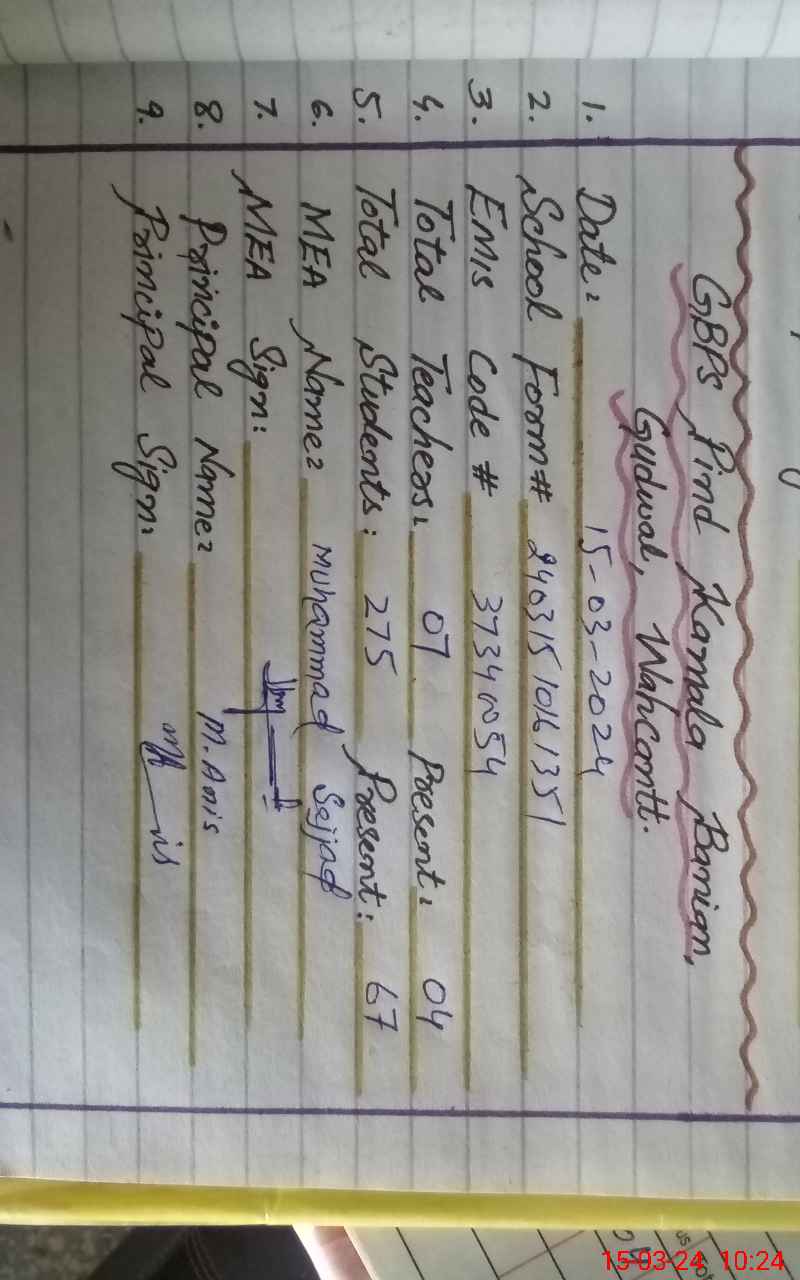 GBPS Pind Kamala Banian,
Gudwal, Wahcantt.
1. Date: 15-03-2024
2. School Form# 24031510161351
3. EMIS Code #
4. Total Teachers: 07 Present: 04
5. Total Students: 275 Present: 67
6. MEA Name: Muhammad Sajjad
7. MEA Sign:
8. Principal Name: M. Anis
9. Principal Sign:
15-03-24 10:24